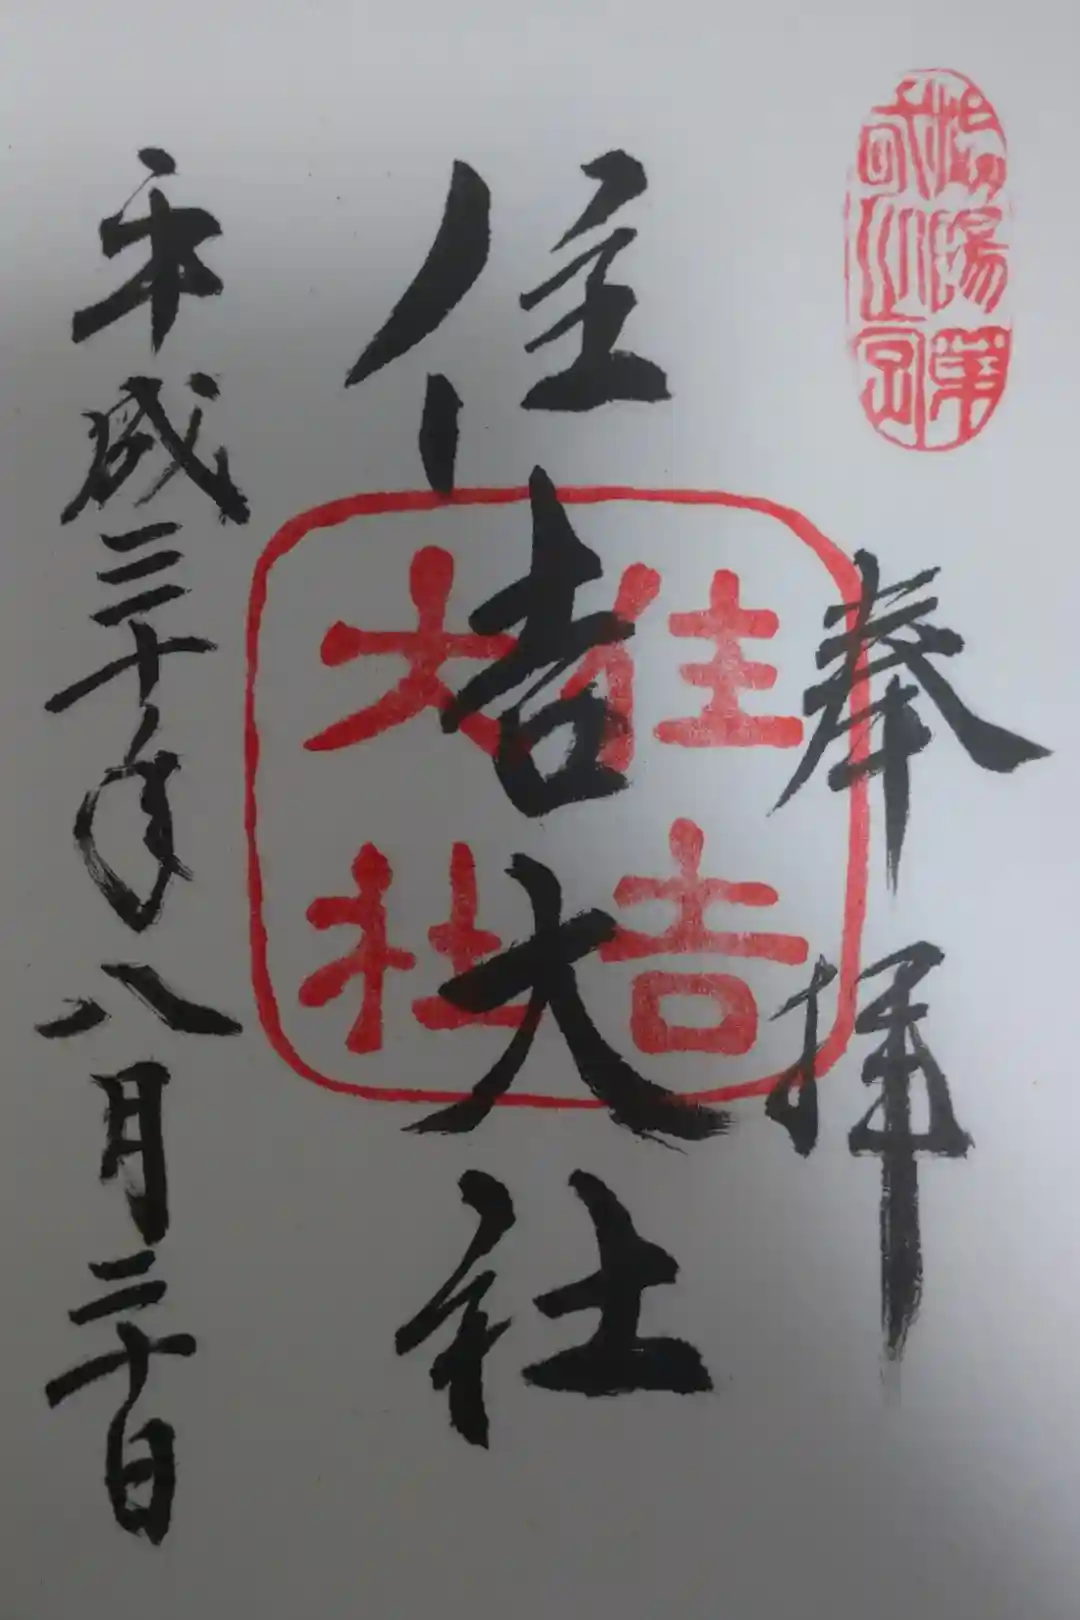 陽第
之宮
奉拝
住吉大社
住吉
大社
平成三十年八月二十日